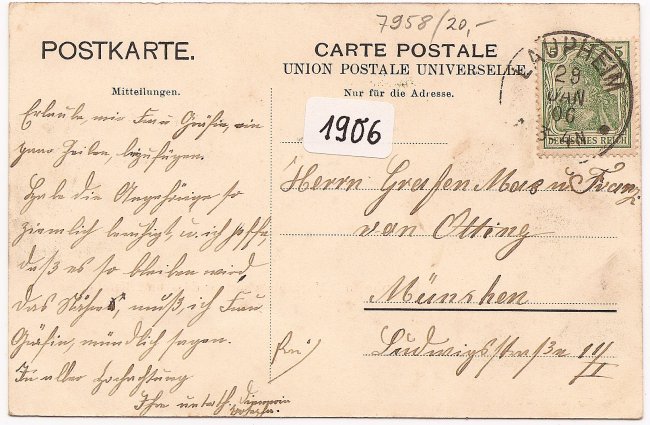 7958/20,-
POSTKARTE.
CARTE POSTALE
UNION POSTALE UNIVERSELLE
Mitteilungen.
Nur für die Adresse.
LAUPHEIM
28
JAN
06
5
DEUTSCHES REICH
1906
Erlaube, mir Frau Gräfin, ein
paar Zeilen, beizufügen.
Habe die Angehörige so
ziemlich beruhigt, u. ich hoffe,
daß es so bleiben wird
das Nähere, muß ich Frau
Gräfin, mündlich sagen.
In aller Hochachtung
Ihre unterth.
Herrn Grafen Max u. Franz
von Otting
München
Ludwigsstraße 11/I
frei